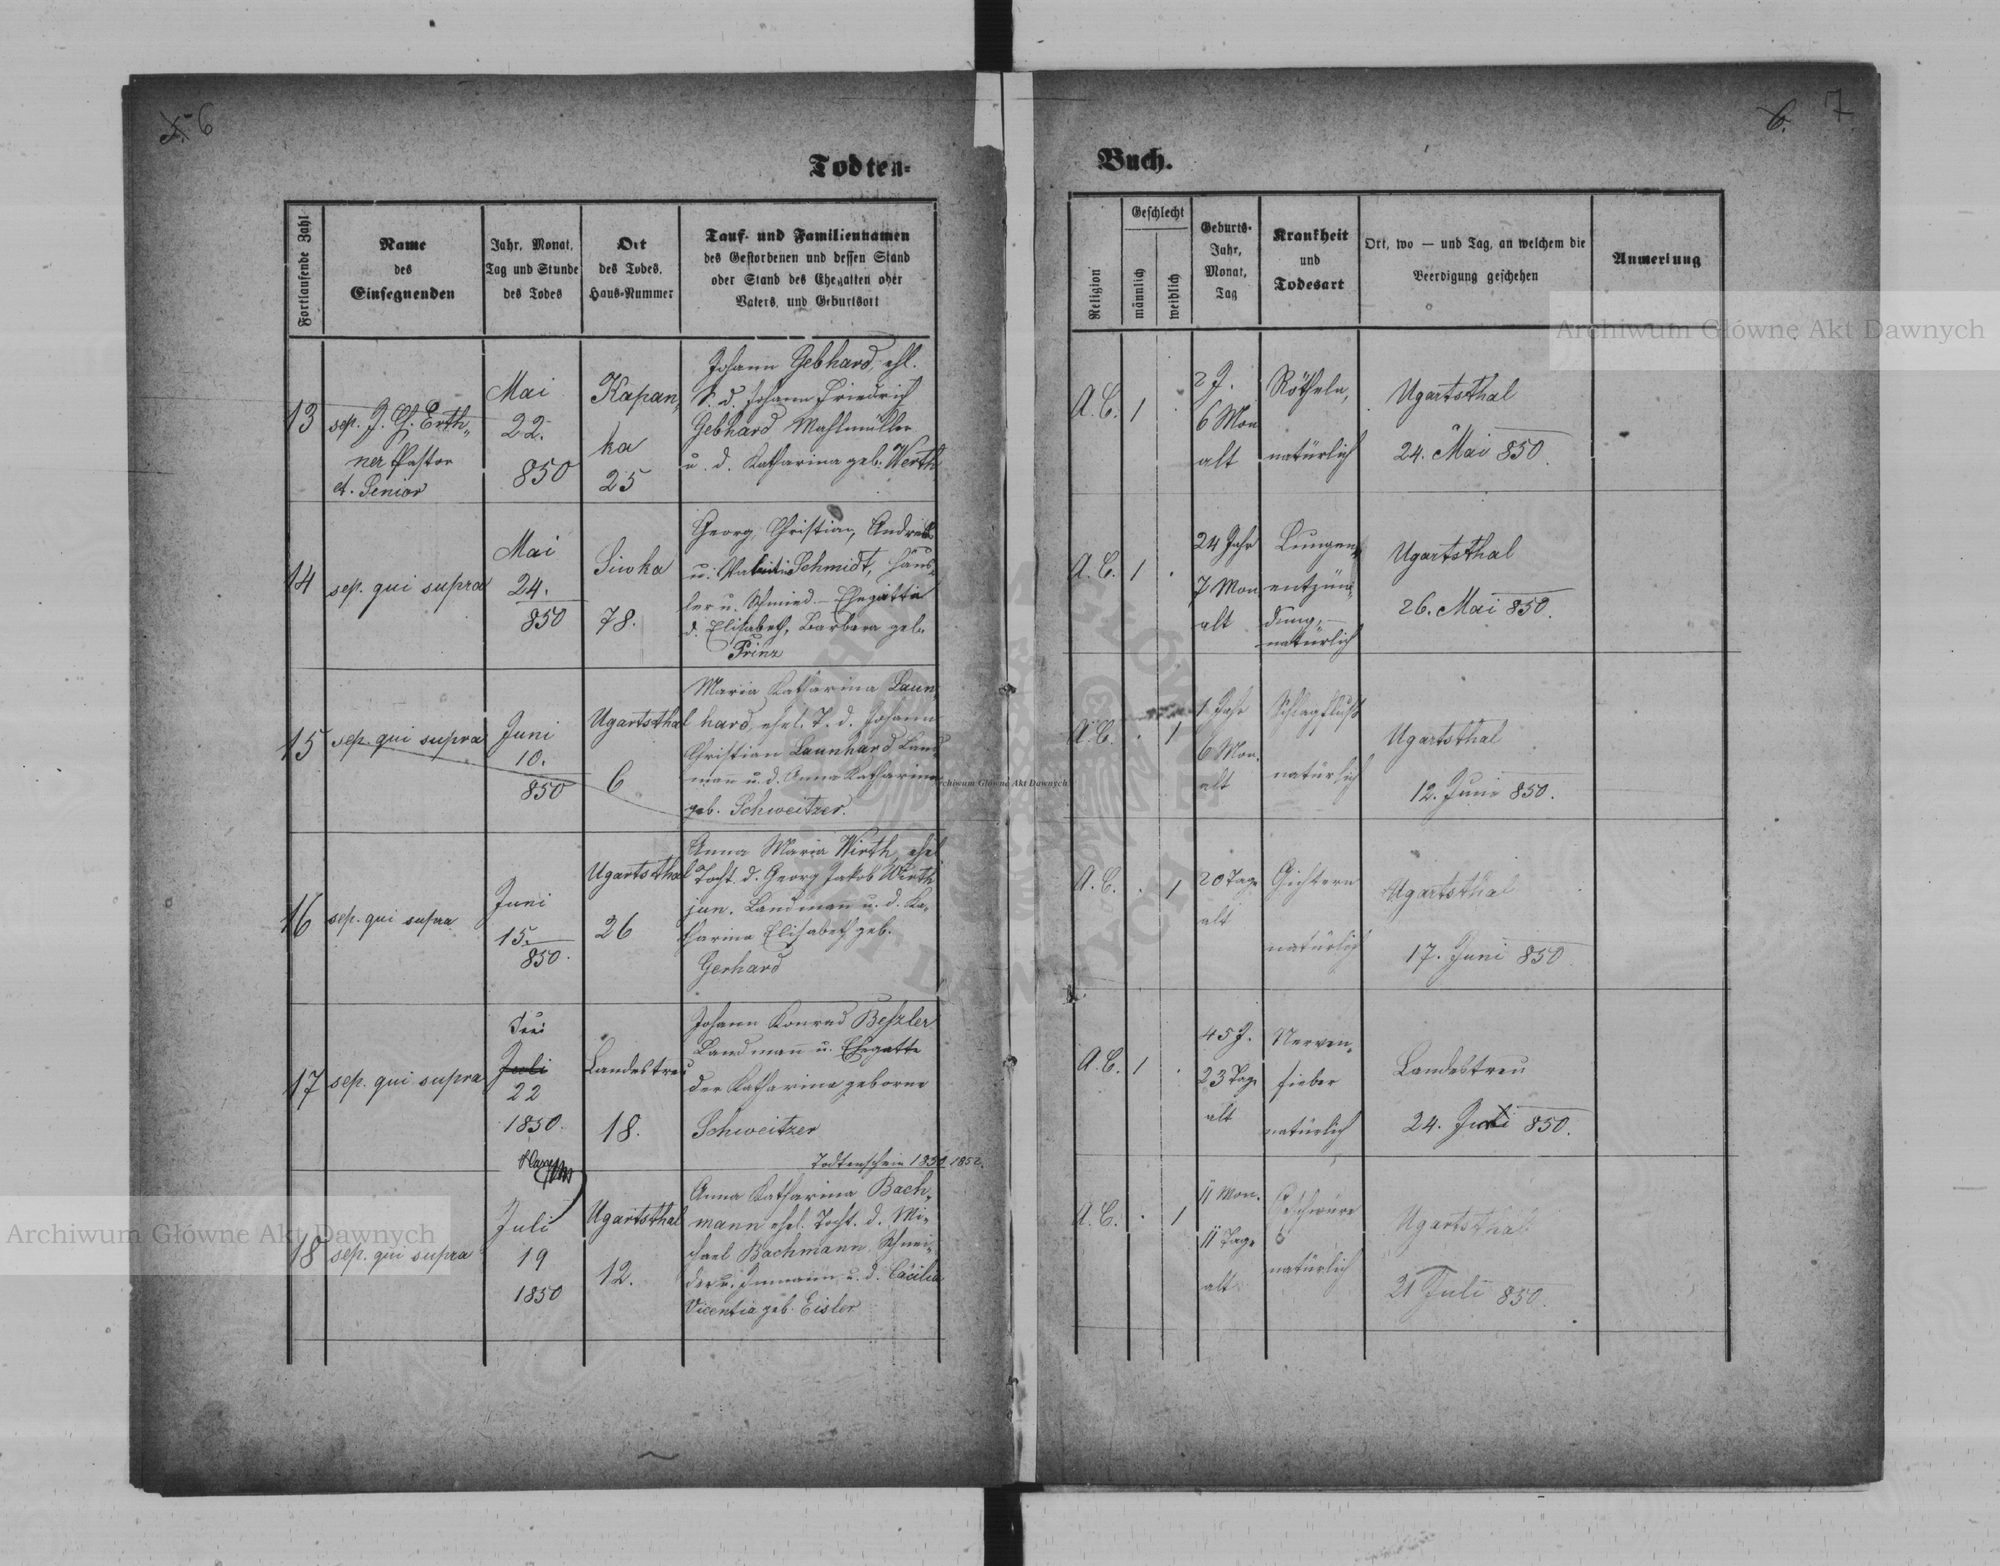 5. 6
Todten-
Fortlaufende Zahl
Name
des
Einsegnenden
Jahr, Monat,
Tag und Stunde
des Todes
Ort
des Todes,
Haus-Nummer
Tauf- und Familiennamen
des Gestorbenen und dessen Stand
oder Stand des Ehegatten oder
Vaters, und Geburtsort
13
sep. J. G. Erth-
ner Pastor
et. Senior
Mai
22.
850
Kapan,
ka
25
Johann Gebhard, ehl.
S. d. Johann Friedrich
Gebhard Mahlmüller
u. d. Katharina geb. Werth
14
sep. qui supra
Mai
24.
850
Siwka
78.
Georg, Christian, Andreas
u. Schmidt, Häus-
ler u. Schmied – Ehegatte
d. Elisabeth, Barbara geb.
Prinz
15
sep. qui supra
Juni
10.
850
Ugartsthal
6
Maria Katharina Laun-
hard, ehel. T. d. Johann
Christian Launhard Land-
mann u. d. Anna Katharina
geb. Schweitzer.
16
sep. qui supra
Juni
15.
850.
Ugartsthal
26
Anna Maria Wirth, ehel
Tocht. d. Georg Jakob Wirth
jun. Landmann u. d. Ka-
tharina Elisabeth geb.
Gerhard
17
sep. qui supra
Juni
Juli
22
1850.
Landestreu
18.
Johann Konrad Beßler
Landmann u. Ehegatte
der Katharina geborne
Schweitzer
Todtenschein 1850 1852.
18
sep. qui supra
Juli
19
1850
Ugartsthal
12.
Anna Katharina Bach-
mann ehel. Tocht. d. Mi-
chael Bachmann, Schnei-
der u. Inmann u. d. Cäcilia
Vicentia geb. Eisler
6. 7
Buch.
Religion
Geschlecht
männlich
weiblich
Geburts-
Jahr,
Monat,
Tag
Krankheit
und
Todesart
Ort, wo — und Tag, an welchem die
Beerdigung geschehen
Anmerkung
A. C. 1 .
2 J.
6 Mon
alt
Rötheln,
natürlich
Ugartsthal
24. Mai 850.
A. C. 1 .
24 Jahr
7 Mon
alt
Lungen-
entzün-
dung,
natürlich
Ugartsthal
26. Mai 850.
A. C. . 1
1 Jahr
6 Mon.
alt
Schlagfluß
natürlich
Ugartsthal
12. Juni 850.
A. C. . 1
20 Tage
alt
Gichtern
natürlich
Ugartsthal
17. Juni 850
A. C. 1 .
45 J.
23 Tage
alt
Nerven-
fieber
natürlich
Landestreu
24. Juni 850.
A. C. . 1
11 Mon.
11 Tage
alt
natürlich
Ugartsthal
21 Juli 850.
Archiwum Główne Akt Dawnych
Archiwum Główne Akt Dawnych
Archiwum Główne Akt Dawnych